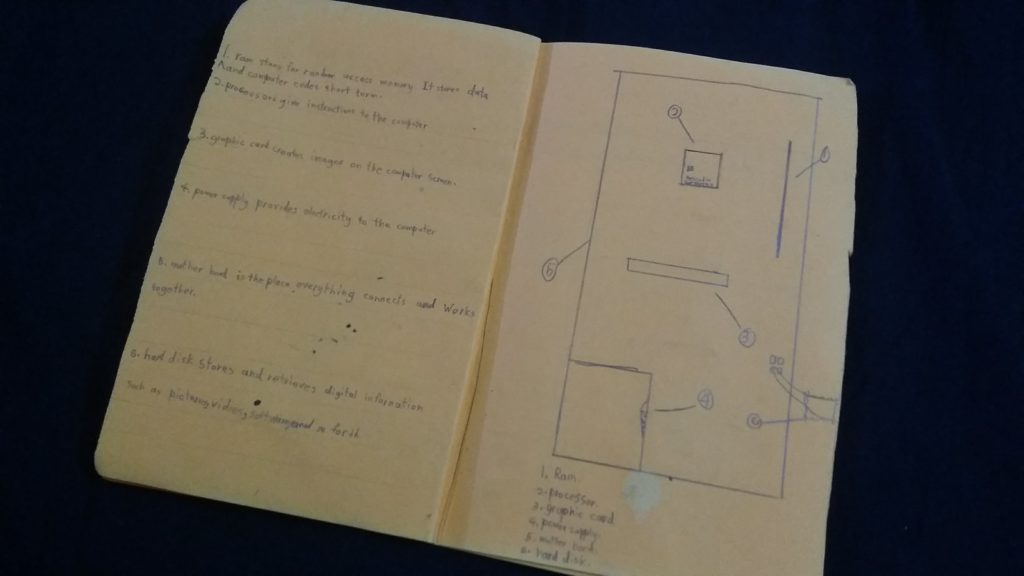 1. ram stans for random access memory It stores data
and computer codes short term.
2. processors give instructions to the computer
3. graphic card creates images on the computer screen.
4. power supply provides electricity to the computer
5. mother bord is the place everything connects and works
together.
6. hard disk stores and retrieves digital information
such as pictures, videos, software, and so forth
2
1
5
3
4
6
1. Ram
2. processer
3. graphic card
4. power supply.
5. mother bord.
6. hard disk.